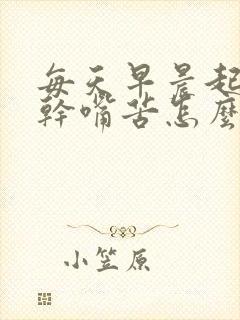 每天早晨起
幹嘴苦怎麼
小笠原